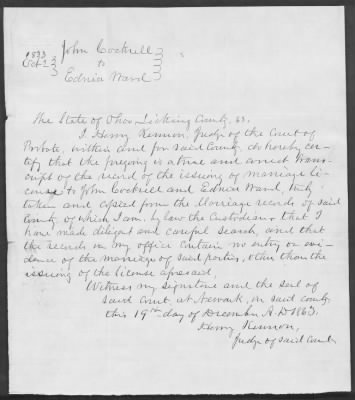 John Cockrill
1833
Oct 23
to
Ednia Ward
The State of Ohio Licking County, ss.
I Henry Kennon, Judge of the Court of
Probate, within and for said County, do hereby cer-
tify that the foregoing is a true and correct trans-
cript of the record of the issuing of marriage li-
cense to John Cockrill and Ednia Ward, truly
taken and copied from the Marriage records of said
County, of which I am by law the Custodian, that I
have made diligent and careful search, and that
the records in my office contain no entry or evi-
dence of the marriage of said parties, other than the
issuing of the license aforesaid.
Witness my signature and the seal of
said Court, at Newark, in said county
this 19th day of December A.D 1863.
Henry Kennon,
Judge of said Court